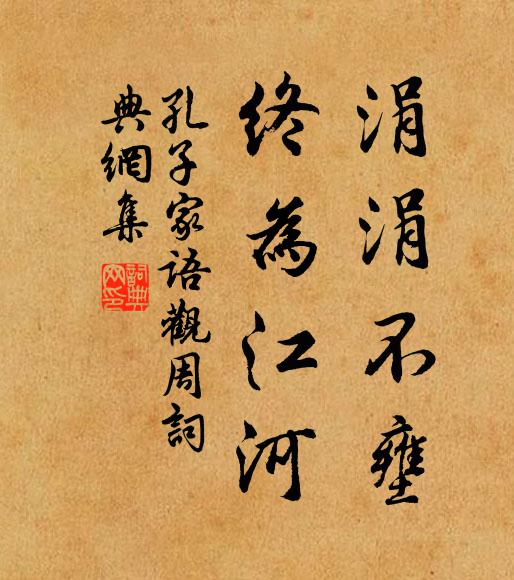 涓涓不壅
終為江河
孔子家語觀周詞
典網集
詞典
网印